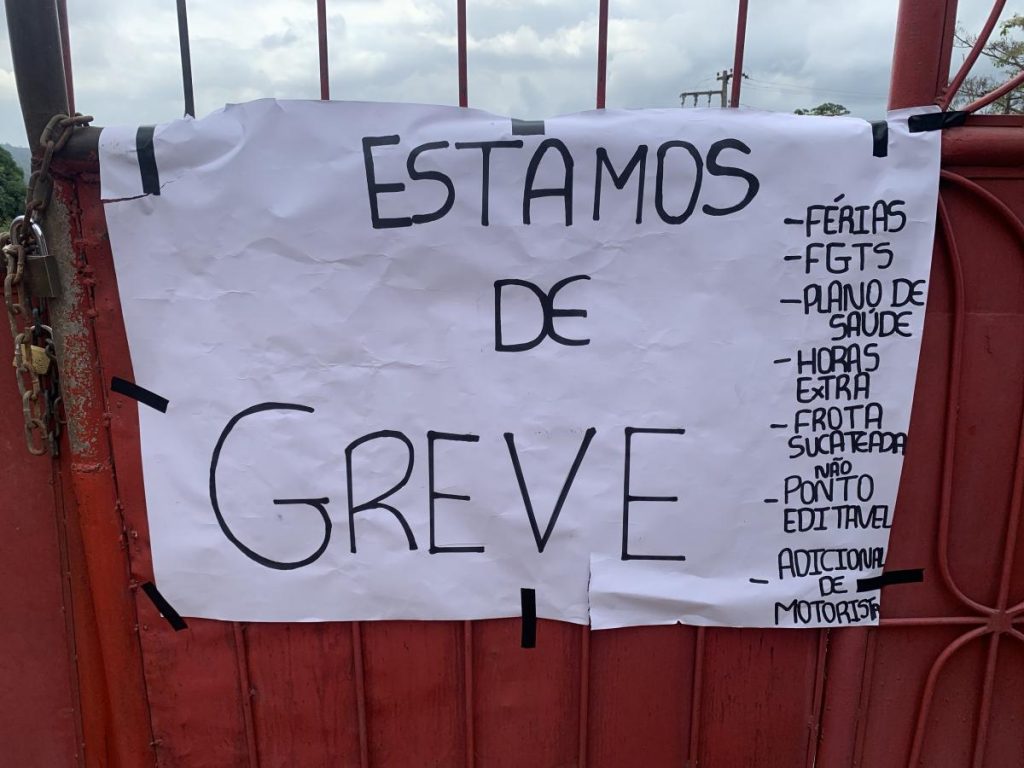 ESTAMOS
DE
GREVE
-FÉRIAS
-FGTS
-PLANO DE
SAÚDE
-HORAS
EXTRA
-FROTA
SUCATEADA
NÃO
-PONTO
EDITAVEL
-ADICIONAL
DE
MOTORISTA